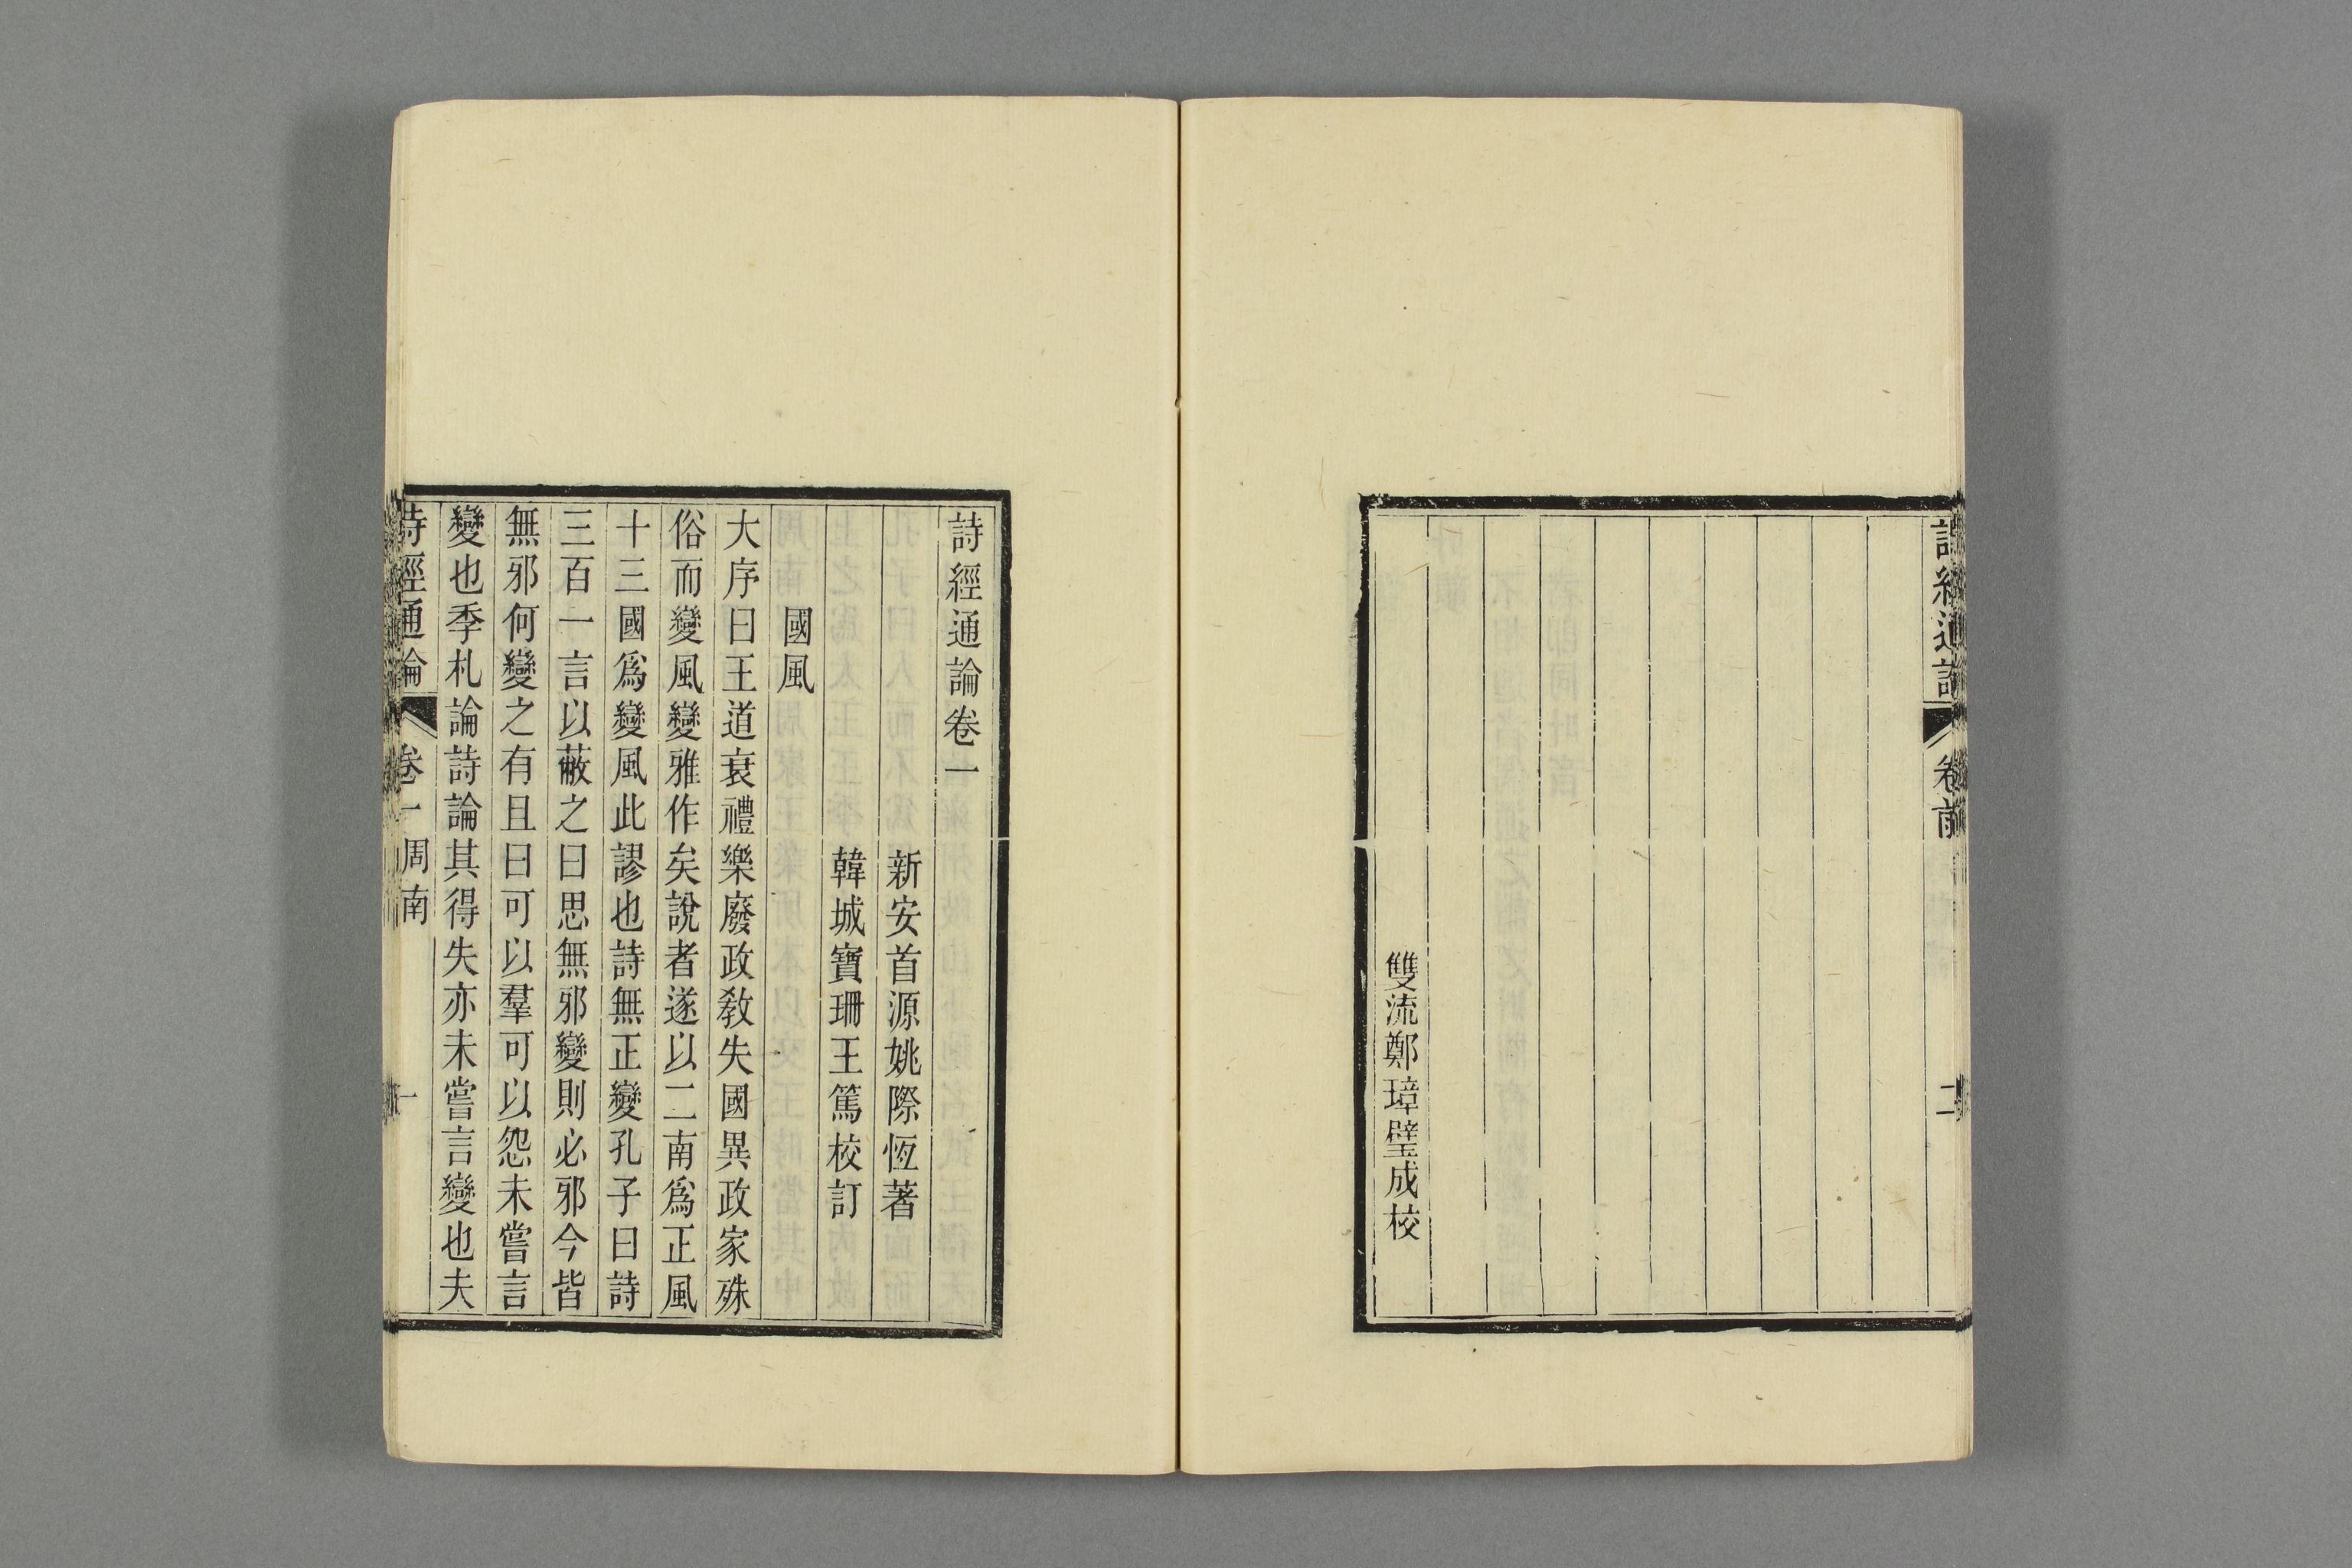 詩經通論
卷前
雙流鄭璋璧成校
詩經通論卷一
新安首源姚際恆著
韓城寶珊王篤校訂
國風
大序曰王道衰禮樂廢政敎失國異政家殊
俗而變風變雅作矣說者遂以二南爲正風
十三國爲變風此謬也詩無正變孔子曰詩
三百一言以蔽之曰思無邪變則必邪今皆
無邪何變之有且曰可以羣可以怨未嘗言
變也季札論詩論其得失亦未嘗言變也夫
詩經通論
卷一周南
一